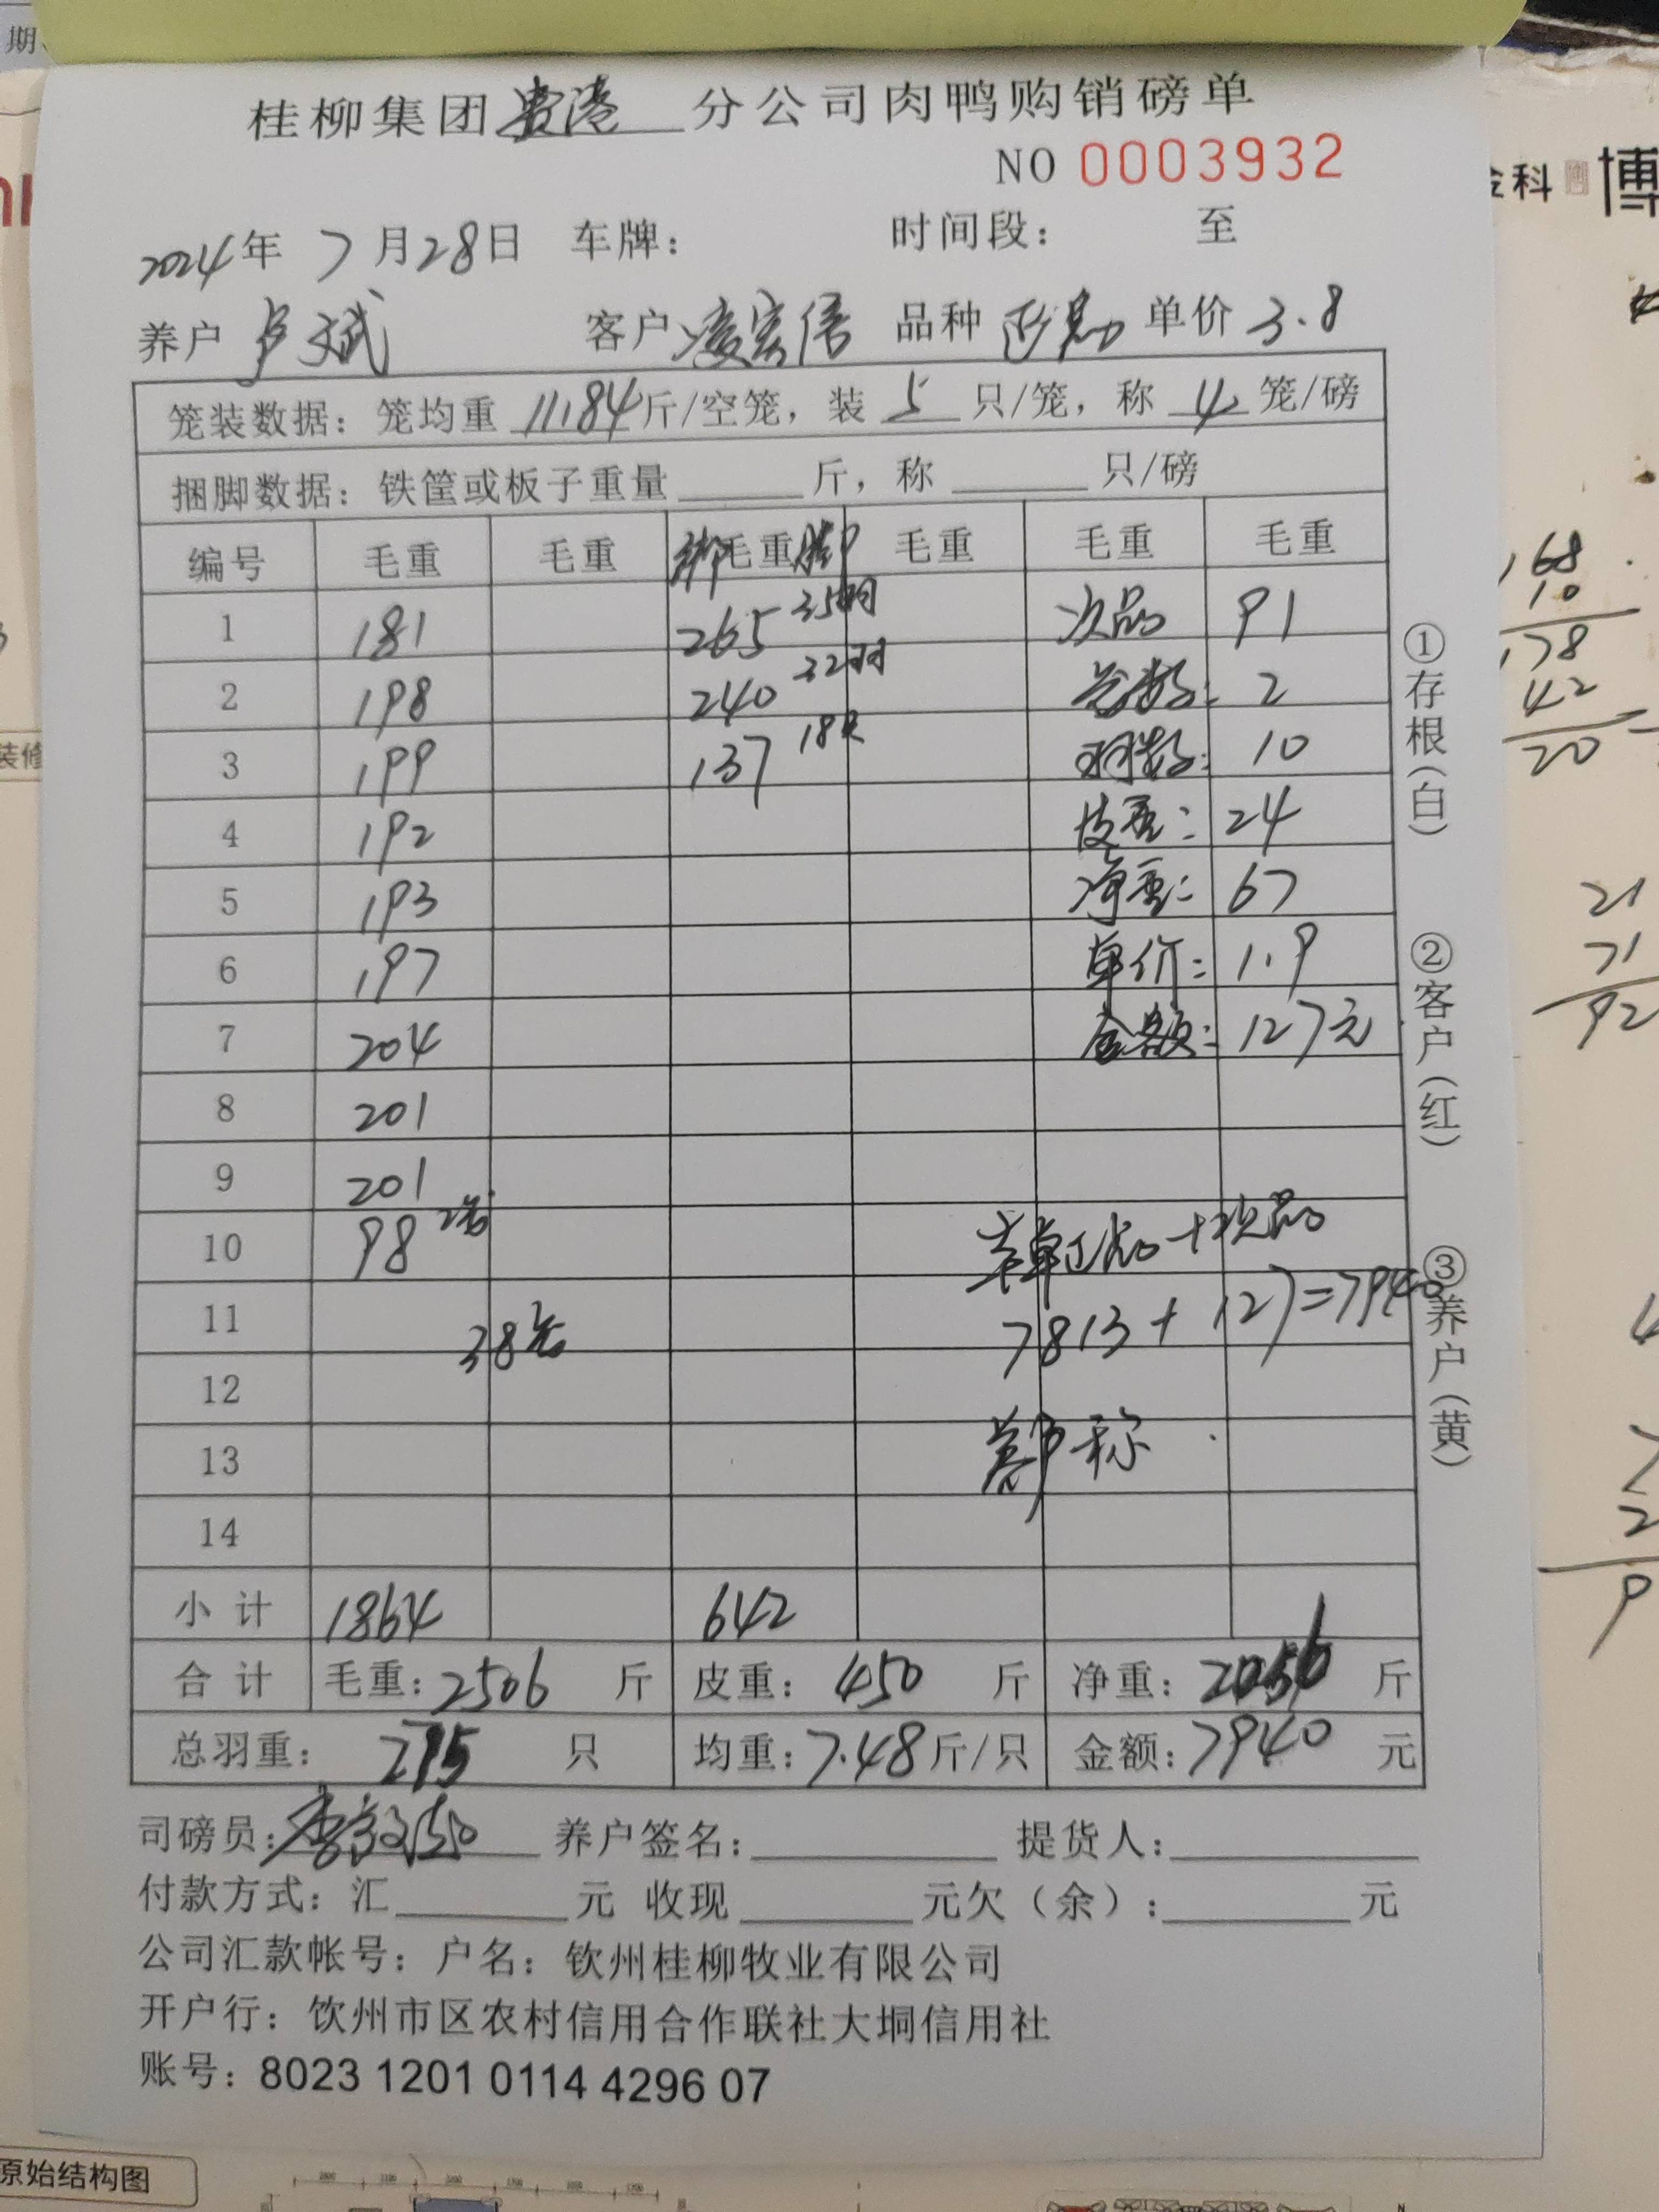 期
桂柳集团贵港分公司肉鸭购销磅单
NO 0003932
2024年 7月28日 车牌： 时间段： 至
养户 卢文斌 客户 凌宏信 品种 单价 3.8
笼装数据：笼均重 11.84斤/空笼，装 5 只/笼，称 4 笼/磅
捆脚数据：铁筐或板子重量 斤，称 只/磅
编号 毛重 毛重 绑毛重脚 毛重 毛重 毛重
1 181 265 35羽 次品 91
2 198 240 32羽 笼数： 2
3 199 137 18只 羽数： 10
4 192 皮重： 24
5 193 净重： 67
6 197 单价： 1.9
7 204 金额： 127元
8 201
9 201
10 98 2笼 本单正品+次品
11 38笼 7813+127=7940
12
13 称
14
小计 1864 642
合计 毛重：2506 斤 皮重： 450 斤 净重：2056 斤
总羽重： 275 只 均重：7.48斤/只 金额：7940 元
司磅员： 养户签名： 提货人：
付款方式：汇 元 收现 元欠（余）： 元
公司汇款帐号：户名：钦州桂柳牧业有限公司
开户行：钦州市区农村信用合作联社大垌信用社
账号：8023 1201 0114 4296 07
①存根（白）
②客户（红）
③养户（黄）
金科 博
168
10
178
42
20
21
71
92
装修
原始结构图